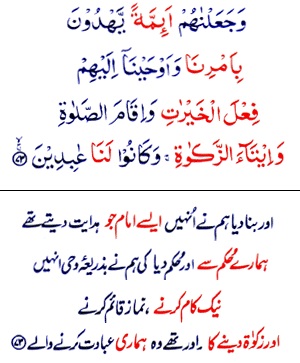 وَجَعَلْنٰهُمْ اَئِمَّةً يَّهْدُوْنَ
بِاَمْرِنَا وَاَوْحَيْنَآ اِلَيْهِمْ
فِعْلَ الْخَيْرٰتِ وَاِقَامَ الصَّلٰوةِ
وَاِيْتَآءَ الزَّكٰوةِ ۚ وَكَانُوْا لَنَا عٰبِدِيْنَ ۙ﴿۷۳﴾
اور بنا دیا ہم نے اُنہیں ایسے امام جو ہدایت دیتے تھے
ہمارے حُکم سے اور حُکم دیا کی ہم نے بذریعۂ وحی انہیں
نیک کام کرنے ، نماز قائم کرنے
اور زکوٰۃ دینے کا ۔ اور تھے وہ ہماری عبادت کرنے والے ﴿۷۳﴾